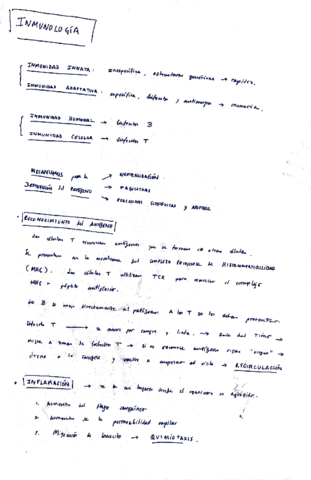 INMUNOLOGÍA
INMUNIDAD INNATA: inespecífica, estructuras genéricas → rápida.
INMUNIDAD ADAPTATIVA: específica, linfocito y anticuerpo → memoria.
INMUNIDAD HUMORAL → linfocitos B
INMUNIDAD CELULAR → linfocitos T
MECANISMOS para la → NEUTRALIZACIÓN
DESTRUCCIÓN del PATÓGENO → FAGOCITOSIS
→ REACCIONES CITOTÓXICAS y
• RECONOCIMIENTO del ANTÍGENO
Las células T reconocen antígenos que se forman en otras células.
Se presentan en la membrana del COMPLEJO PRINCIPAL DE HISTOCOMPATIBILIDAD
(MHC). Las células T utilizan TCR para reconocer el complejo
MHC + péptido antigénico.
Los B se unen directamente al patógeno. A los T se los deben presentar.
Linfocito T → se mueve por sangre y linfa. → Sale del Timo →
migra a zonas de linfocitos T → si no reconoce antígeno sigue →
drena a la sangre y vuelve a empezar el ciclo → RECIRCULACIÓN
• INFLAMACIÓN → se da en lugares donde el organismo es agredido.
1. Aumento del flujo sanguíneo
2. Aumento de la permeabilidad capilar
3. Migración de → QUIMIOTAXIS.